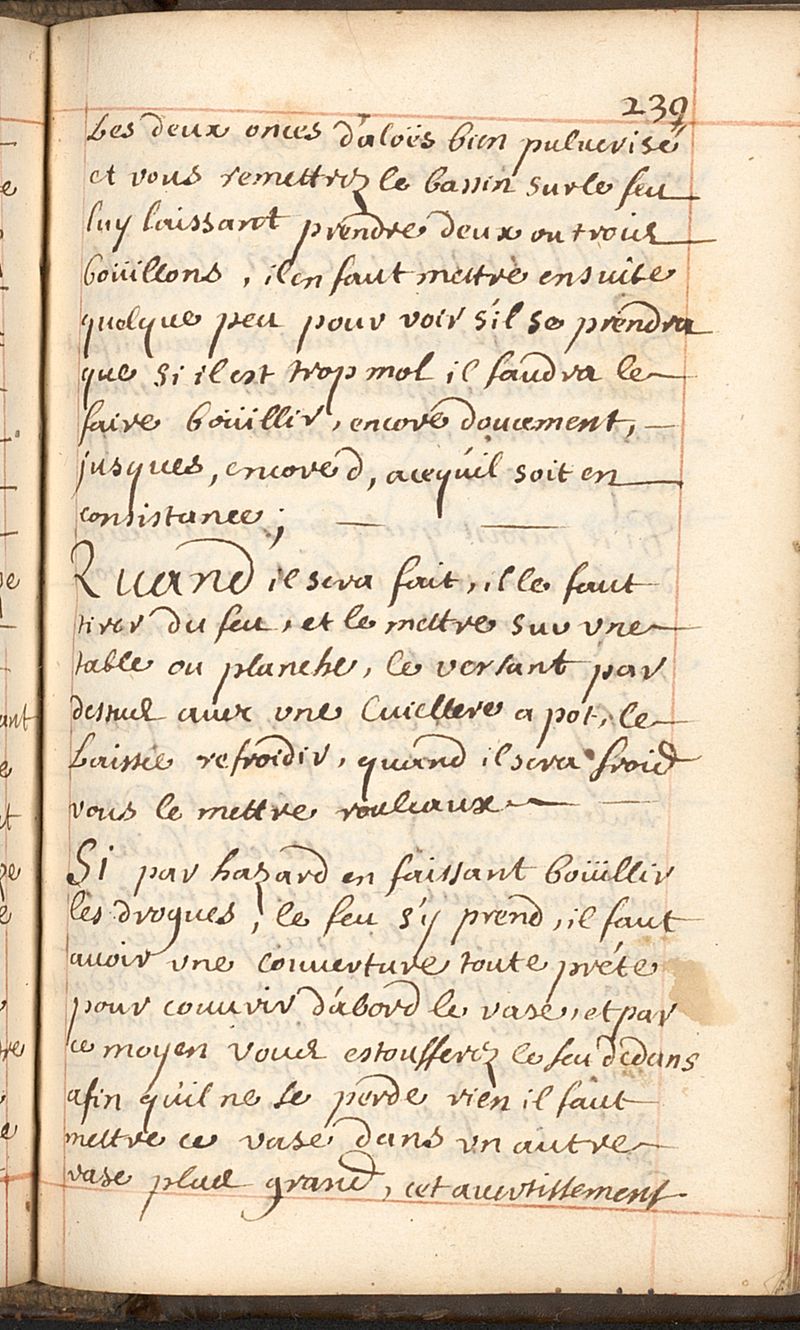 239
Les deux onces d'aloës bien pulverisé
et vous remettrez le bassin sur le feu
luy laissant prendre deux ou trois
boüillons, il en faut mettre ensuite
quelque peu pour voir s'il se prendra
que si il est trop mol il faudra le
faire boüillir, encore doucement,
jusques, encore d, acequ'il soit en
consistance;
Quand il sera fait, il le faut
tirer du feu, et le mettre sur une
table ou planche, le versant par
dessus avec une cuiellere a pot, le
Laisse refroidir, quand il sera froid
vous le mettre rouleaux
Si par hazard en faissant boüillir
les drogues, le feu s'y prend, il faut
avoir une couverture toute préte
pour couvrir d'abord le vase, et par
ce moyen vous estoufferez le feu dedans
afin qu'il ne se perde rien il faut
mettre ce vase dans un autre
vase plus grand, cet avertissement